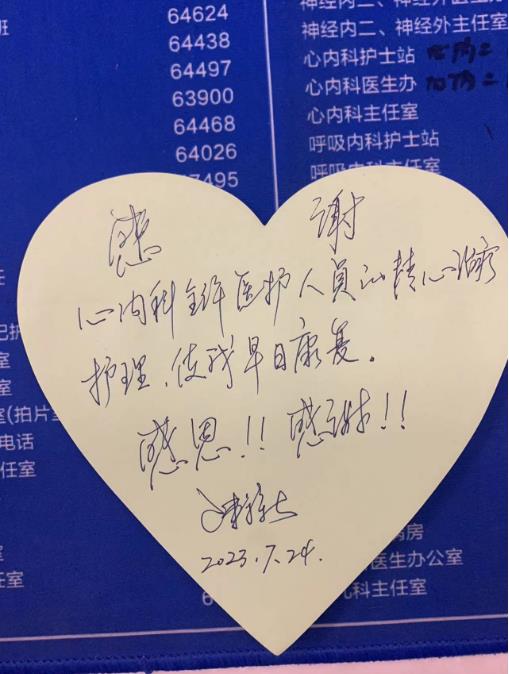 64624
64438
64497
63900
64468
64026
7495
神经内二、神经外医生办
神经内二、神经外主任室
心内科护士站
心内科医生办
心内科主任室
呼吸内科护士站
呼吸内科主任室
感谢
心内科全体医护人员的精心治疗
护理、使我早日康复。
感恩!! 感谢!!
2023.7.24.
室(拍片
电话
任室
室
任室
病房
医生办公室
科主任室